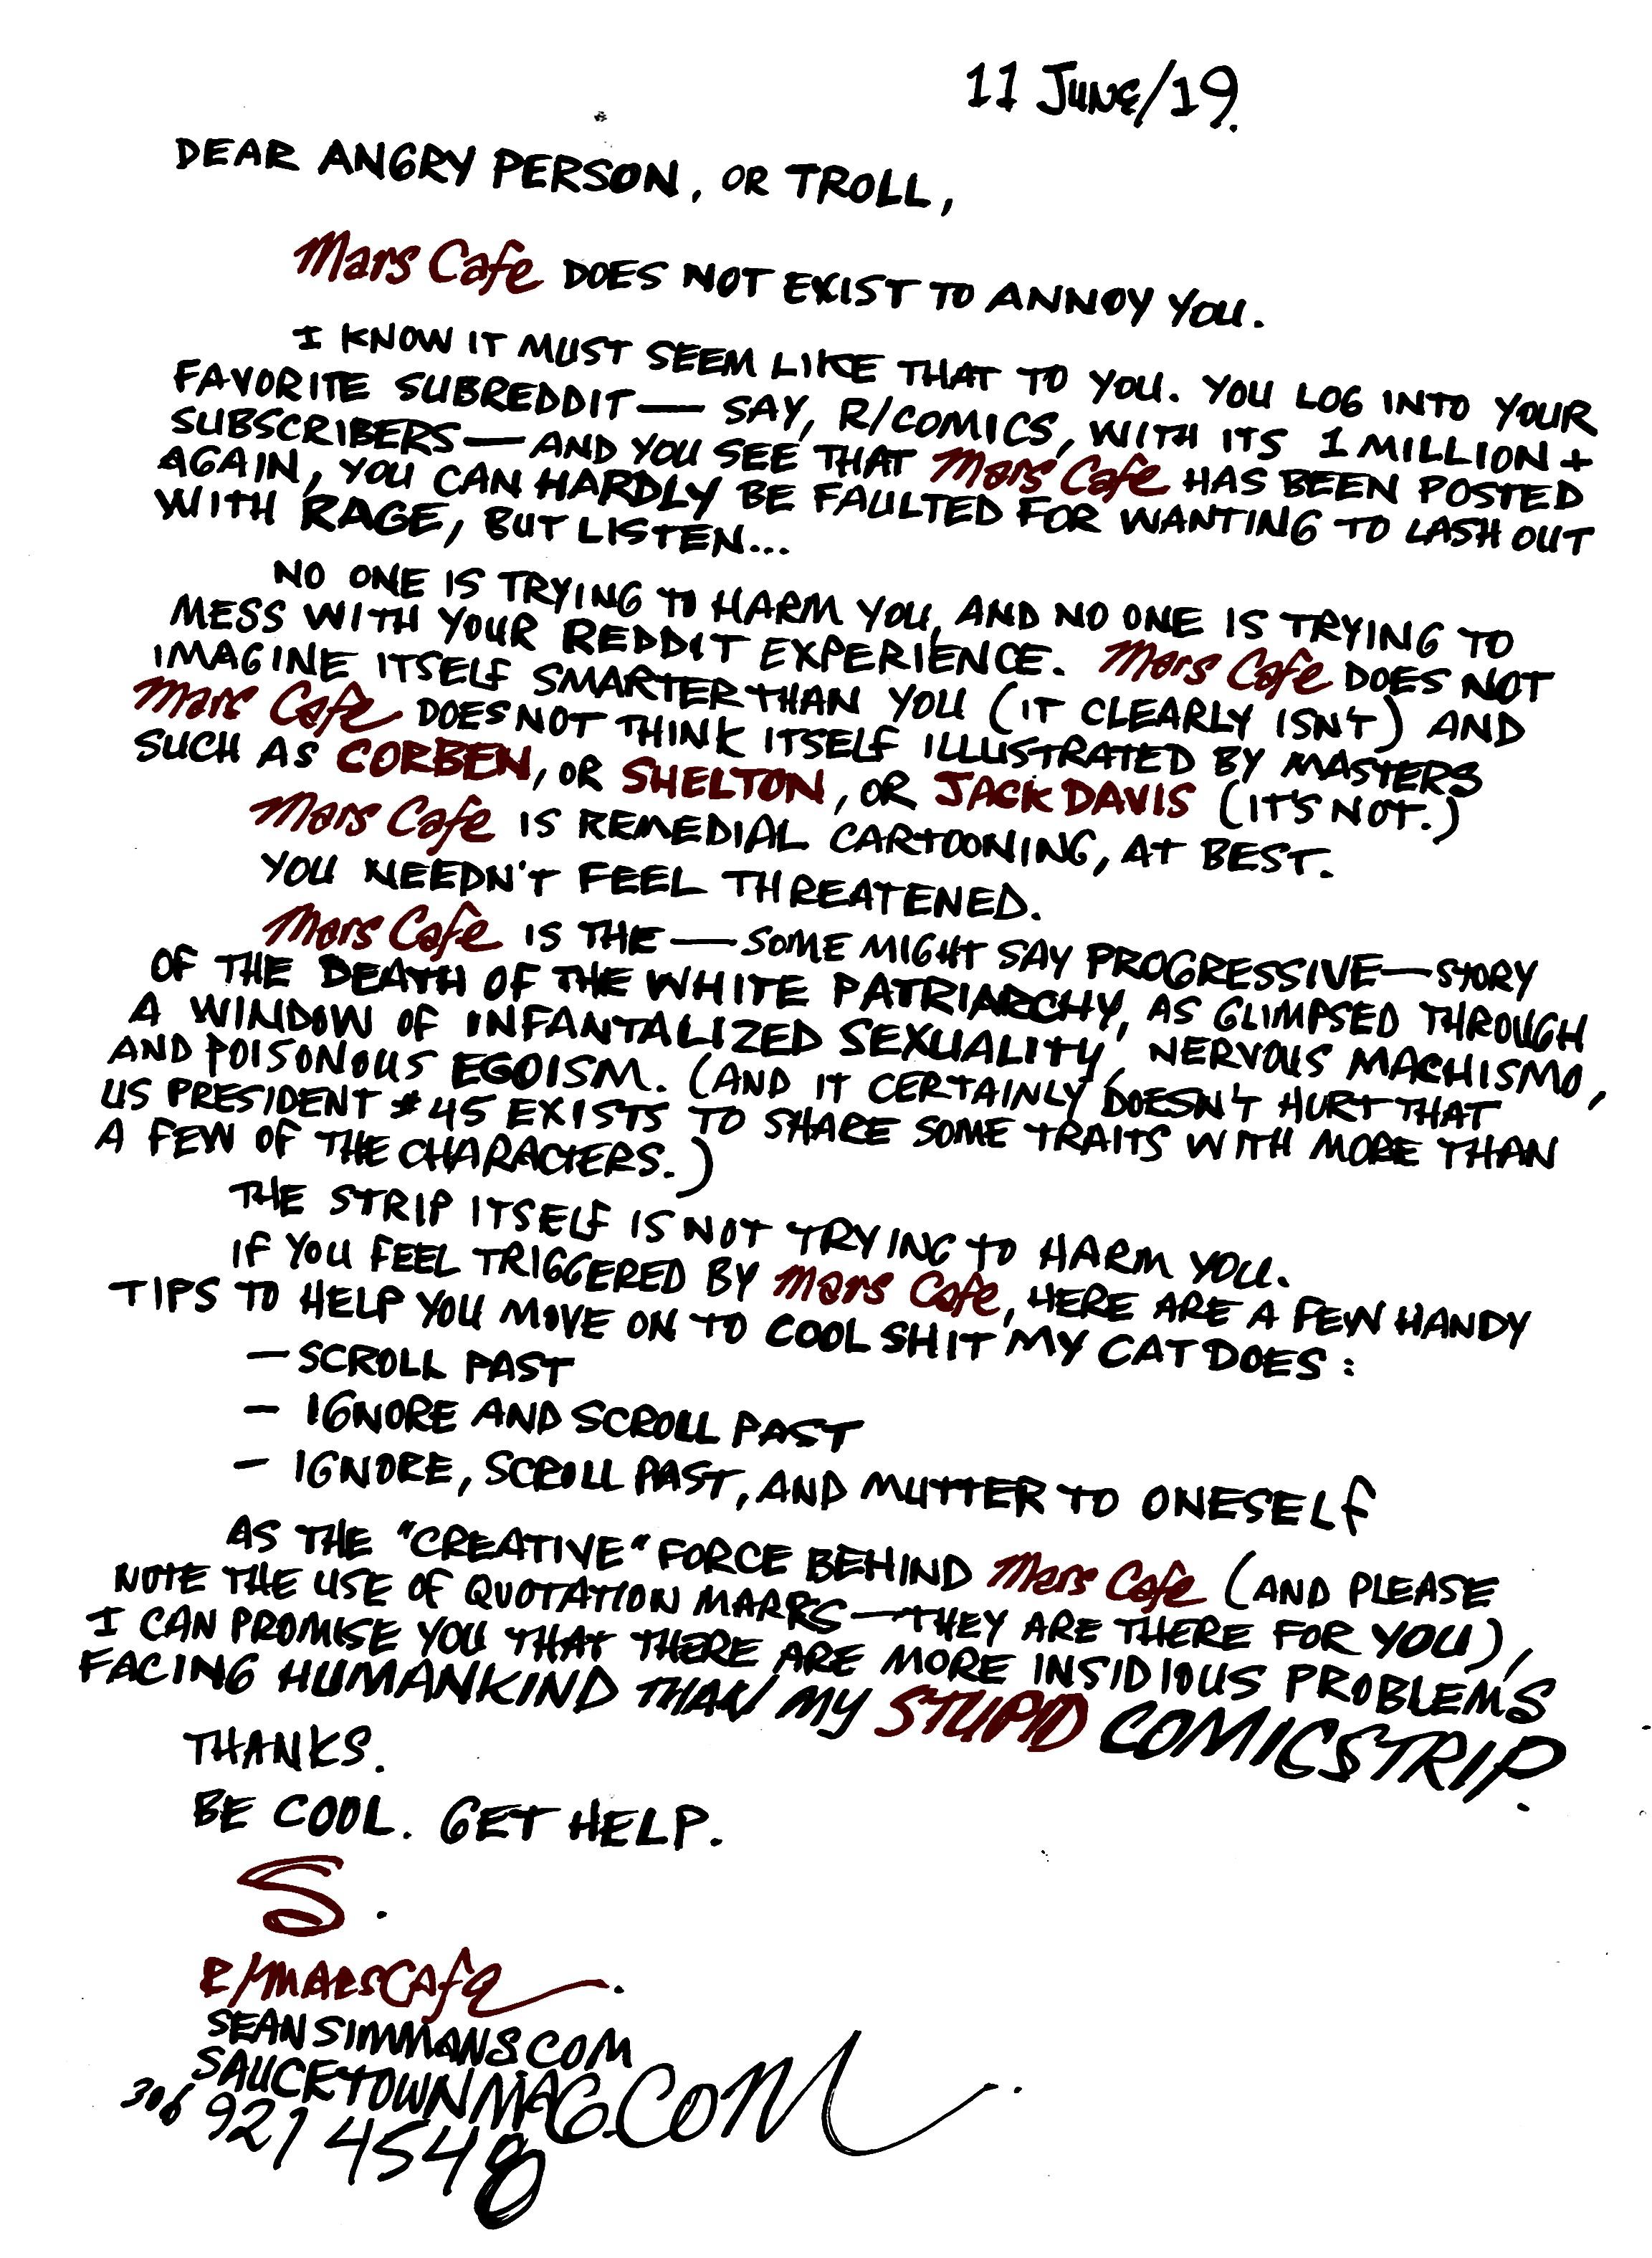 11 JUNE/19.
DEAR ANGRY PERSON, OR TROLL,
Mars Cafe DOES NOT EXIST TO ANNOY YOU.
I KNOW IT MUST SEEM LIKE THAT TO YOU. YOU LOG INTO YOUR
FAVORITE SUBREDDIT — SAY, R/COMICS, WITH ITS 1 MILLION +
SUBSCRIBERS — AND YOU SEE THAT Mars Cafe HAS BEEN POSTED
AGAIN, YOU CAN HARDLY BE FAULTED FOR WANTING TO LASH OUT
WITH RAGE, BUT LISTEN...
NO ONE IS TRYING TO HARM YOU, AND NO ONE IS TRYING TO
MESS WITH YOUR REDDIT EXPERIENCE. Mars Cafe DOES NOT
IMAGINE ITSELF SMARTER THAN YOU (IT CLEARLY ISN'T) AND
Mars Cafe DOES NOT THINK ITSELF ILLUSTRATED BY MASTERS
SUCH AS CORBEN, OR SHELTON, OR JACK DAVIS (IT'S NOT.)
Mars Cafe IS REMEDIAL CARTOONING, AT BEST.
YOU NEEDN'T FEEL THREATENED.
Mars Cafe IS THE — SOME MIGHT SAY PROGRESSIVE — STORY
OF THE DEATH OF THE WHITE PATRIARCHY, AS GLIMPSED THROUGH
A WINDOW OF INFANTALIZED SEXUALITY, NERVOUS MACHISMO,
AND POISONOUS EGOISM. (AND IT CERTAINLY DOESN'T HURT THAT
US PRESIDENT #45 EXISTS TO SHARE SOME TRAITS WITH MORE THAN
A FEW OF THE CHARACTERS.)
THE STRIP ITSELF IS NOT TRYING TO HARM YOU.
IF YOU FEEL TRIGGERED BY Mars Cafe, HERE ARE A FEW HANDY
TIPS TO HELP YOU MOVE ON TO COOL SHIT MY CAT DOES:
— SCROLL PAST
— IGNORE AND SCROLL PAST
— IGNORE, SCROLL PAST, AND MUTTER TO ONESELF
AS THE "CREATIVE" FORCE BEHIND Mars Cafe (AND PLEASE
NOTE THE USE OF QUOTATION MARKS — THEY ARE THERE FOR YOU),
I CAN PROMISE YOU THAT THERE ARE MORE INSIDIOUS PROBLEMS
FACING HUMANKIND THAN MY STUPID COMIC STRIP.
THANKS.
BE COOL. GET HELP.
S.
R/MARSCAFE.
SEANSIMMANS.COM
SAUCETOWNMAG.COM
306 921 4548